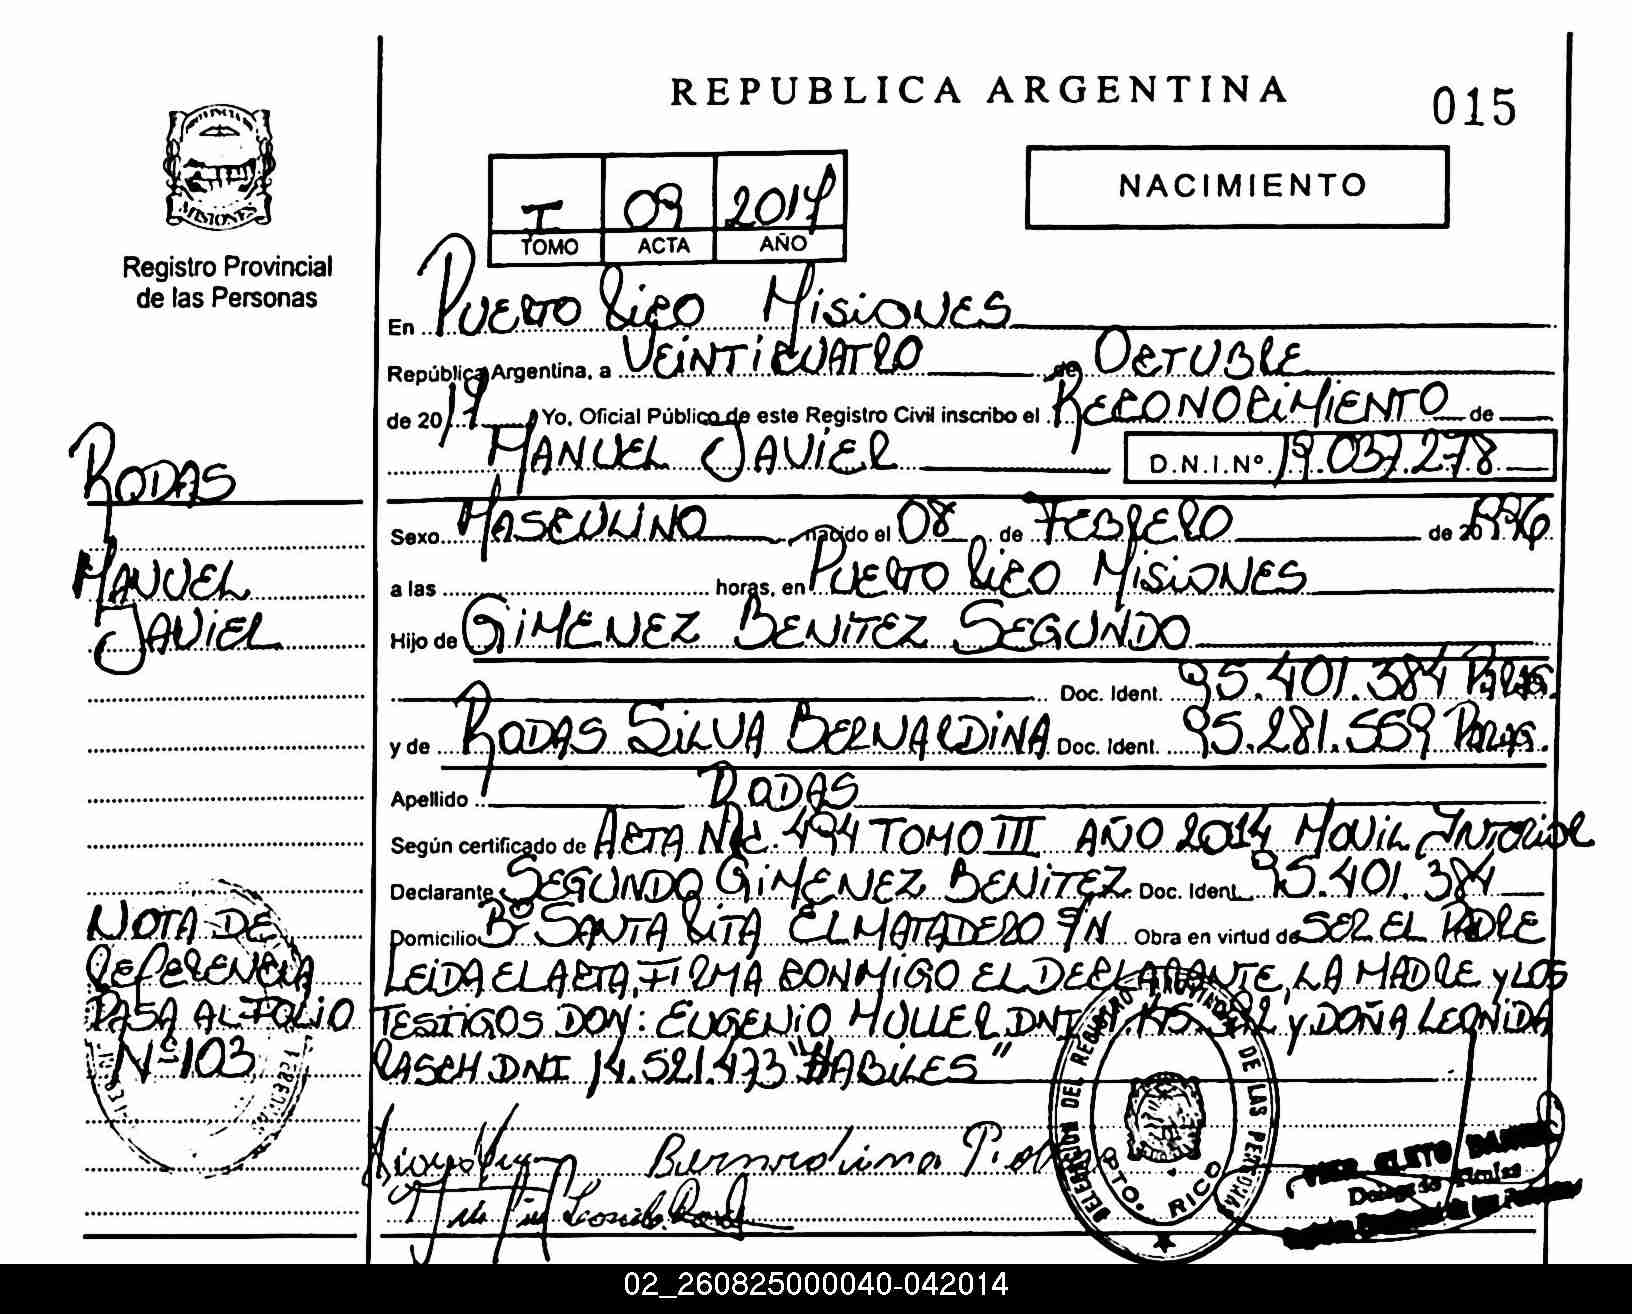 REPUBLICA ARGENTINA
015
NACIMIENTO
PROVINCIA DE
MISIONES
Registro Provincial
de las Personas
I 09 2014
TOMO ACTA AÑO
En PUERTO RICO MISIONES
República Argentina, a VEINTICUATRO de OCTUBRE
de 20 Yo, Oficial Público de este Registro Civil inscribo el RECONOCIMIENTO de
MANUEL JAVIER D.N.I.Nº. 19.037.278
RODAS
MANUEL
JAVIER
Sexo MASCULINO nacido el 08 de FEBRERO de 20 1996
a las horas, en PUERTO RICO MISIONES
Hijo de GIMENEZ BENITEZ SEGUNDO
Doc. Ident. 95.401.384 PARAG.
y de RODAS SILVA BERNARDINA Doc. Ident. 95.281.559 PARAG.
Apellido RODAS
Según certificado de ACTA Nº 494 TOMO III AÑO 2014 MOVIL INTERIOR
Declarante SEGUNDO GIMENEZ BENITEZ Doc. Ident. 95.401.384
Domicilio Bº SANTA RITA EL MATADERO S/N Obra en virtud de SER EL PADRE
LEIDA EL ACTA, FIRMA CONMIGO EL DECLARANTE, LA MADRE Y LOS
TESTIGOS DON: EUGENIO MULLER DNI Y DOÑA LEONIDA
RASCH DNI 14.521.473 "HABILES"
NOTA DE
REFERENCIA
PASA AL FOLIO
Nº 103
Bernardina
DELEGACION DEL REGISTRO PROVINCIAL DE LAS PERSONAS
PTO. RICO
02_260825000040-042014